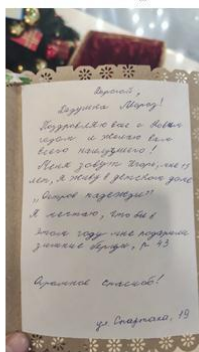 Дорогой,
Дедушка Мороз!
Поздравляю вас с Новым
годом и желаю вам
всего наилучшего!
Меня зовут Игорь, мне 15
лет, я живу в детском доме
„Остров надежды"
Я мечтаю, что бы в
этом году мне подарили
зимние обувь, р 43
Огромное спасибо!
ул. Спартака, 19